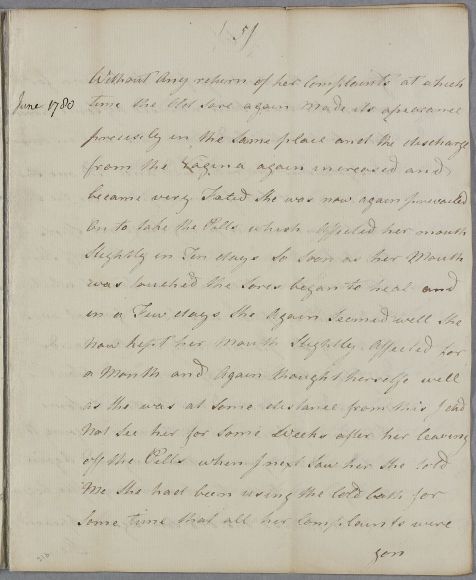 (5)
Without Any return of her Complaints at which
June 1780
time the Old Sore again Made its apearance
presisily in the Same place and the discharge
from the Vagina again increased and
became very Fated She was now again prevailed
On to take the Pills which Affected her mouth
Slightly in Ten days So Soon as her Mouth
was touched the Sores began to heal and
in a Few days She Again Seemed well She
Now kept her Mouth Slightly Affected for
a Month and Again thought herselfe well
as She was at Some distance from this I did
Not See her for Some Weeks after her leaving
off the Pills when I next Saw her She told
Me She had been using the Cold bath for
Some time that all her Complaints were
gon